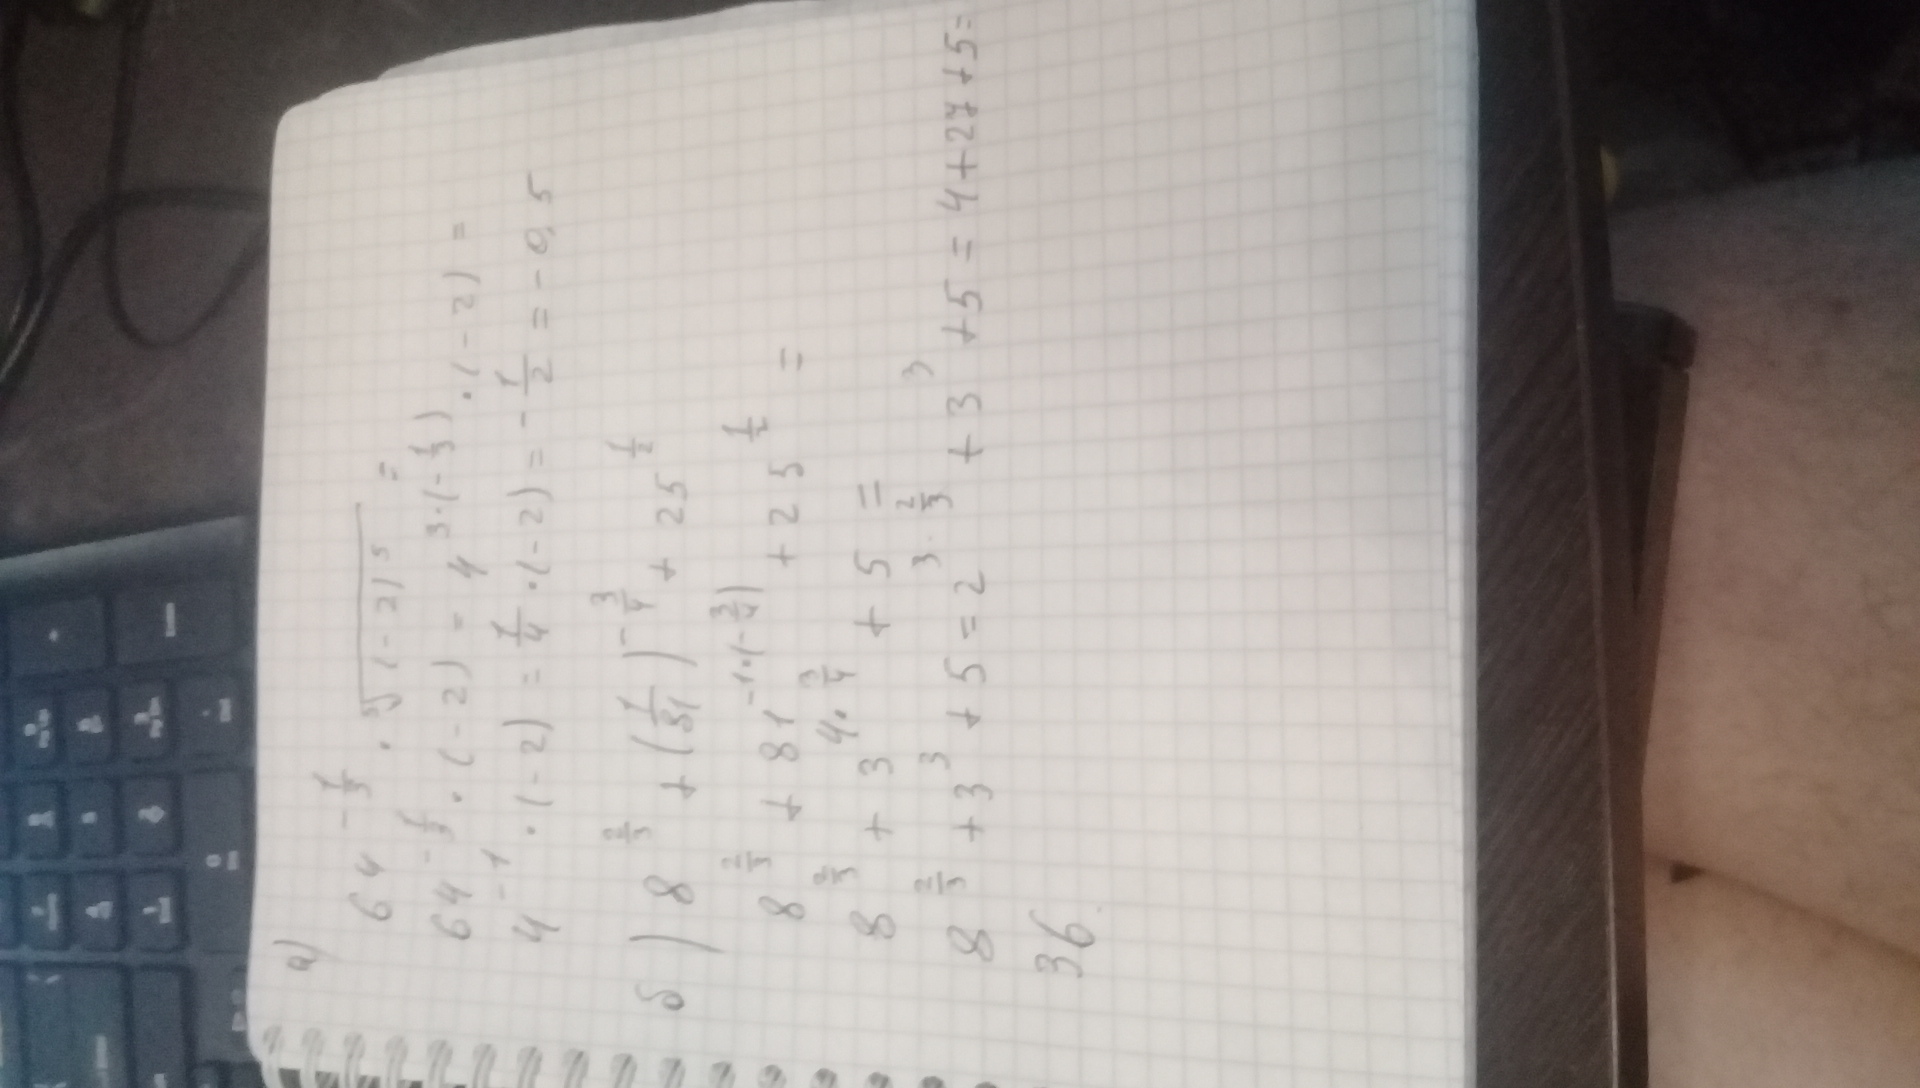 а)
64^{-\frac{1}{3}} · \sqrt[5]{(-2)^5} =
64^{-\frac{1}{3}} · (-2) = 4^{3·(-\frac{1}{3})} · (-2) =
4^{-1} · (-2) = \frac{1}{4} · (-2) = -\frac{1}{2} = -0,5
б) 8^{\frac{2}{3}} + (\frac{1}{81})^{-\frac{3}{4}} + 25^{\frac{1}{2}}
8^{\frac{2}{3}} + 81^{-1·(-\frac{3}{4})} + 25^{\frac{1}{2}} =
8^{\frac{2}{3}} + 3^{4·\frac{3}{4}} + 5 =
8^{\frac{2}{3}} + 3^3 + 5 = 2^{3·\frac{2}{3}} + 3^3 + 5 = 4 + 27 + 5 =
36